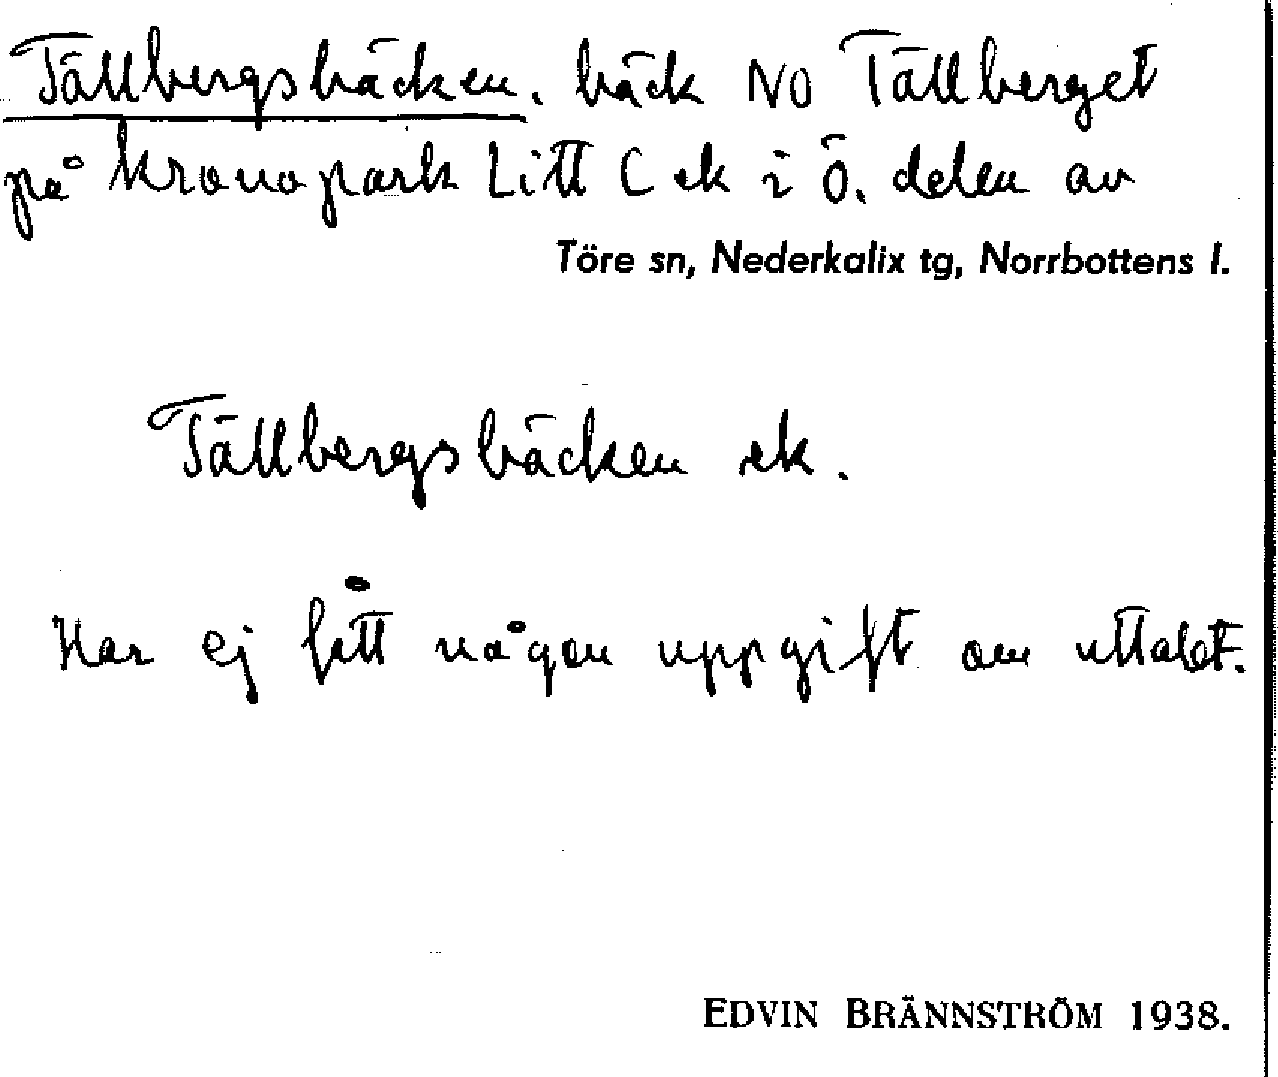 Tällbergsbäcken, bäck NO Tällberget
på kronopark Litt C ek i Ö. delen av
Töre sn, Nederkalix tg, Norrbottens l.
Tällbergsbäcken ek.
Har ej fått någon uppgift om uttalet.
EDVIN BRÄNNSTRÖM 1938.